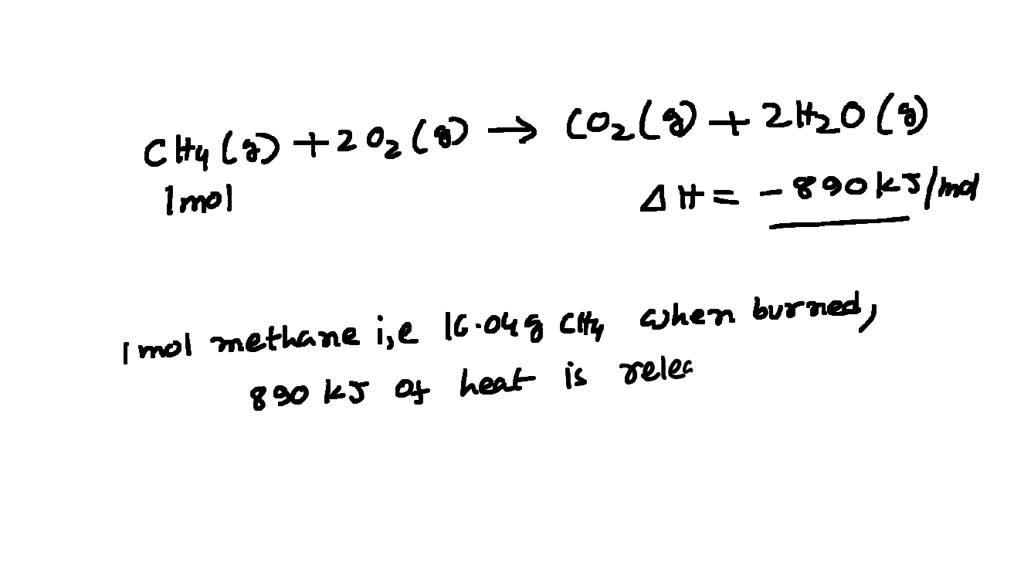 CH4(g) + 2O2(g) → CO2(g) + 2H2O(g)
1mol ΔH = -890kJ/mol
1mol methane i,e 16.04g CH4 when burned,
890 kJ of heat is relea